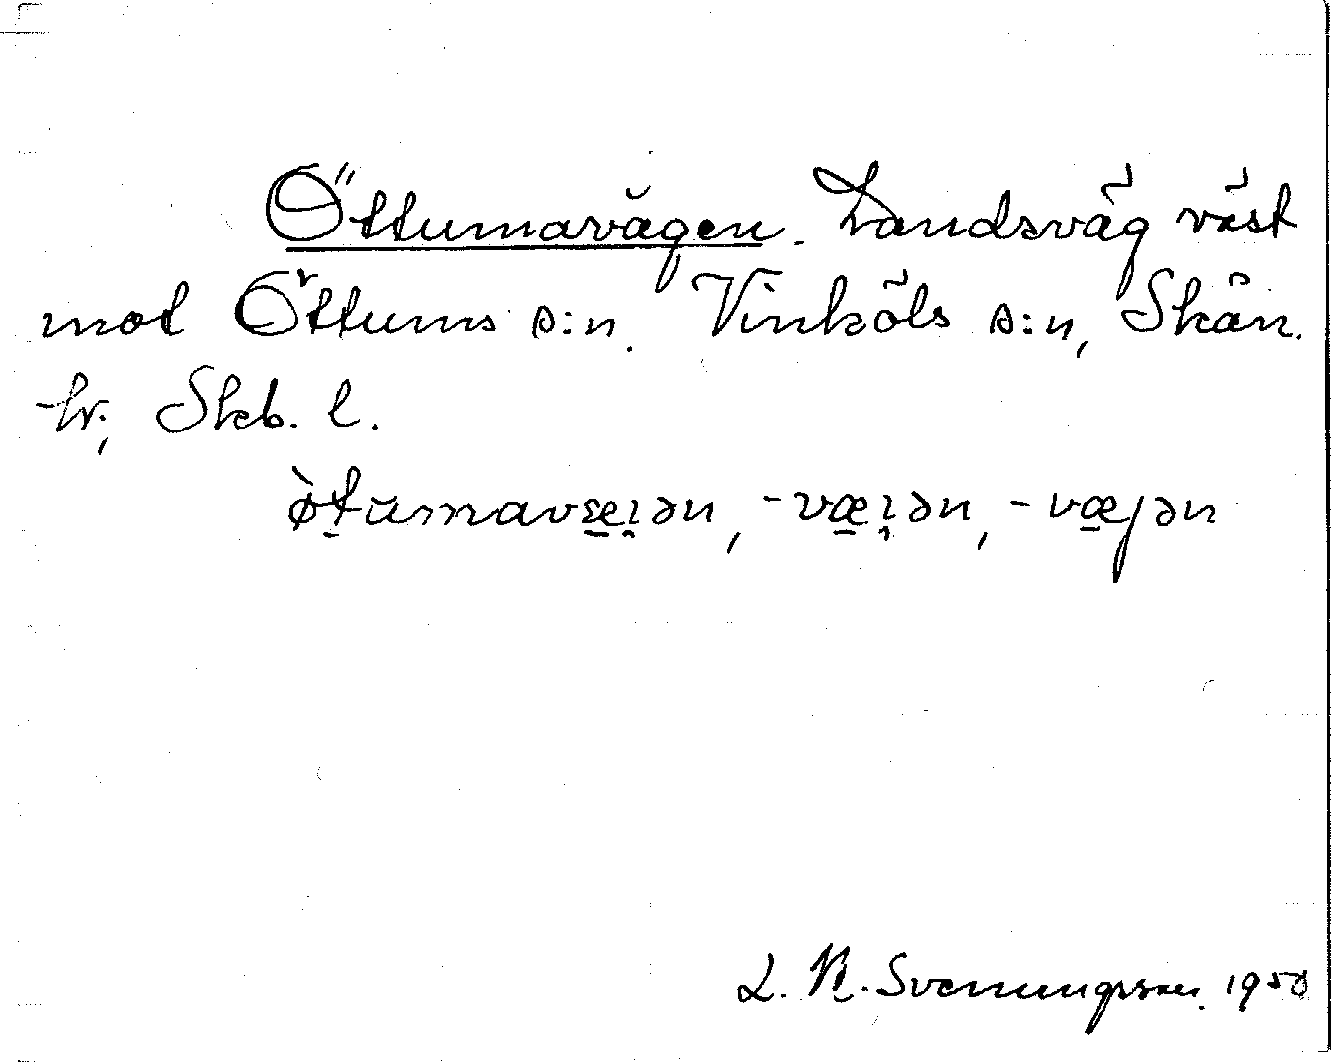 Öttumavägen. Landsväg väst
mot Öttums s:n. Vinköls s:n, Skån.
hr, Skb. l.
ò̱tumavæ̱i̯ən, -væ̱i̯ən, -væ̱jən
L. R. Svenungsson. 1950